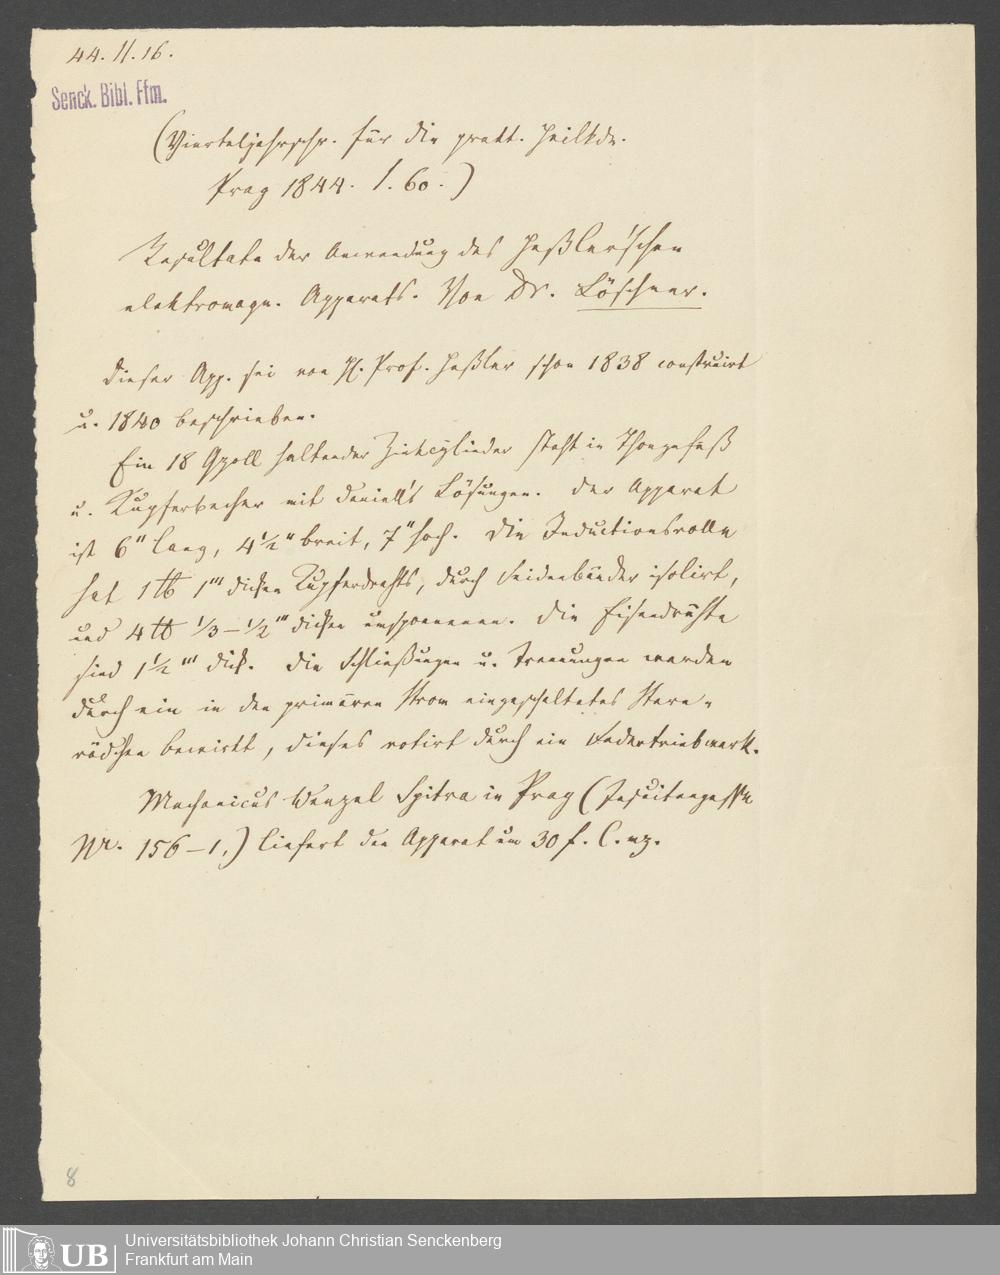 44. II. 16.
Senck. Bibl. Ffm.
(Vierteljahrschr. für die prakt. Heilkde.
Prag 1844. 1. 60.)
Resultate der Anwendung des Heßler'schen
elektromagn. Apparats. Von Dr. Löschner.
Dieser App. sei von H. Prof. Heßler schon 1838 construirt
u. 1840 beschrieben.
Ein 18 haltender Zinkcylinder steht in Thongefäß
u. Kupferbecher mit Daniell's Lösungen. Der Apparat
ist 6" lang, 4½" breit, 7" hoch. Die Inductionsrolle
hat 1 ℔ 1''' dicken Kupferdrahts, durch Seidenbänder isolirt,
und 4 ℔ ⅓–½''' dicken umsponnenen. Die Eisendrähte
sind 1½''' dick. Die Schließungen u. Trennungen werden
durch ein in den primären Strom eingeschaltetes Stern-
rädchen bewirkt, dieses rotirt durch ein Federtriebwerk.
Mechanicus Wenzel Spitra in Prag (Jesuitengasse
Nr. 156–1.) liefert den Apparat um 30 f. C. mz.
8
UB
Universitätsbibliothek Johann Christian Senckenberg
Frankfurt am Main